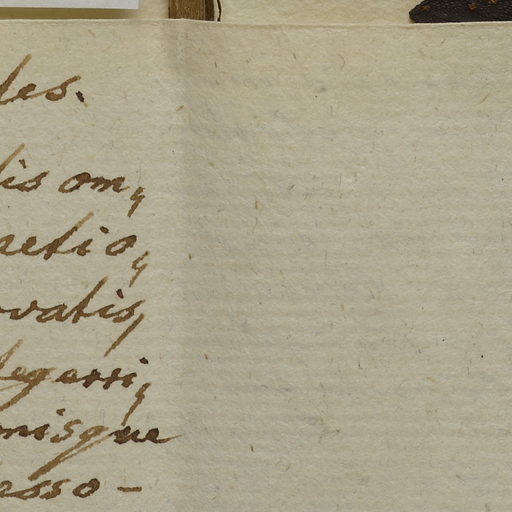 des.
lis om,
netio,
ovatis,
legassi,
nisque
esso-